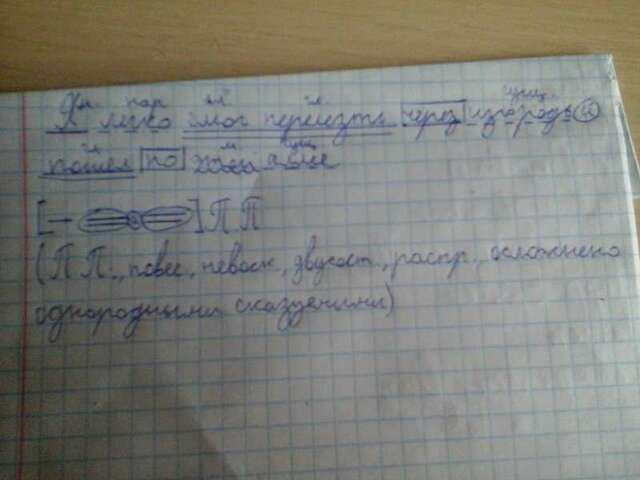 Я легко смог перелезть через изгородь и
пошел по
[— = и =] П П
(П П., повес., невоскл., двусост., распр., осложнено
однородными сказуемыми)